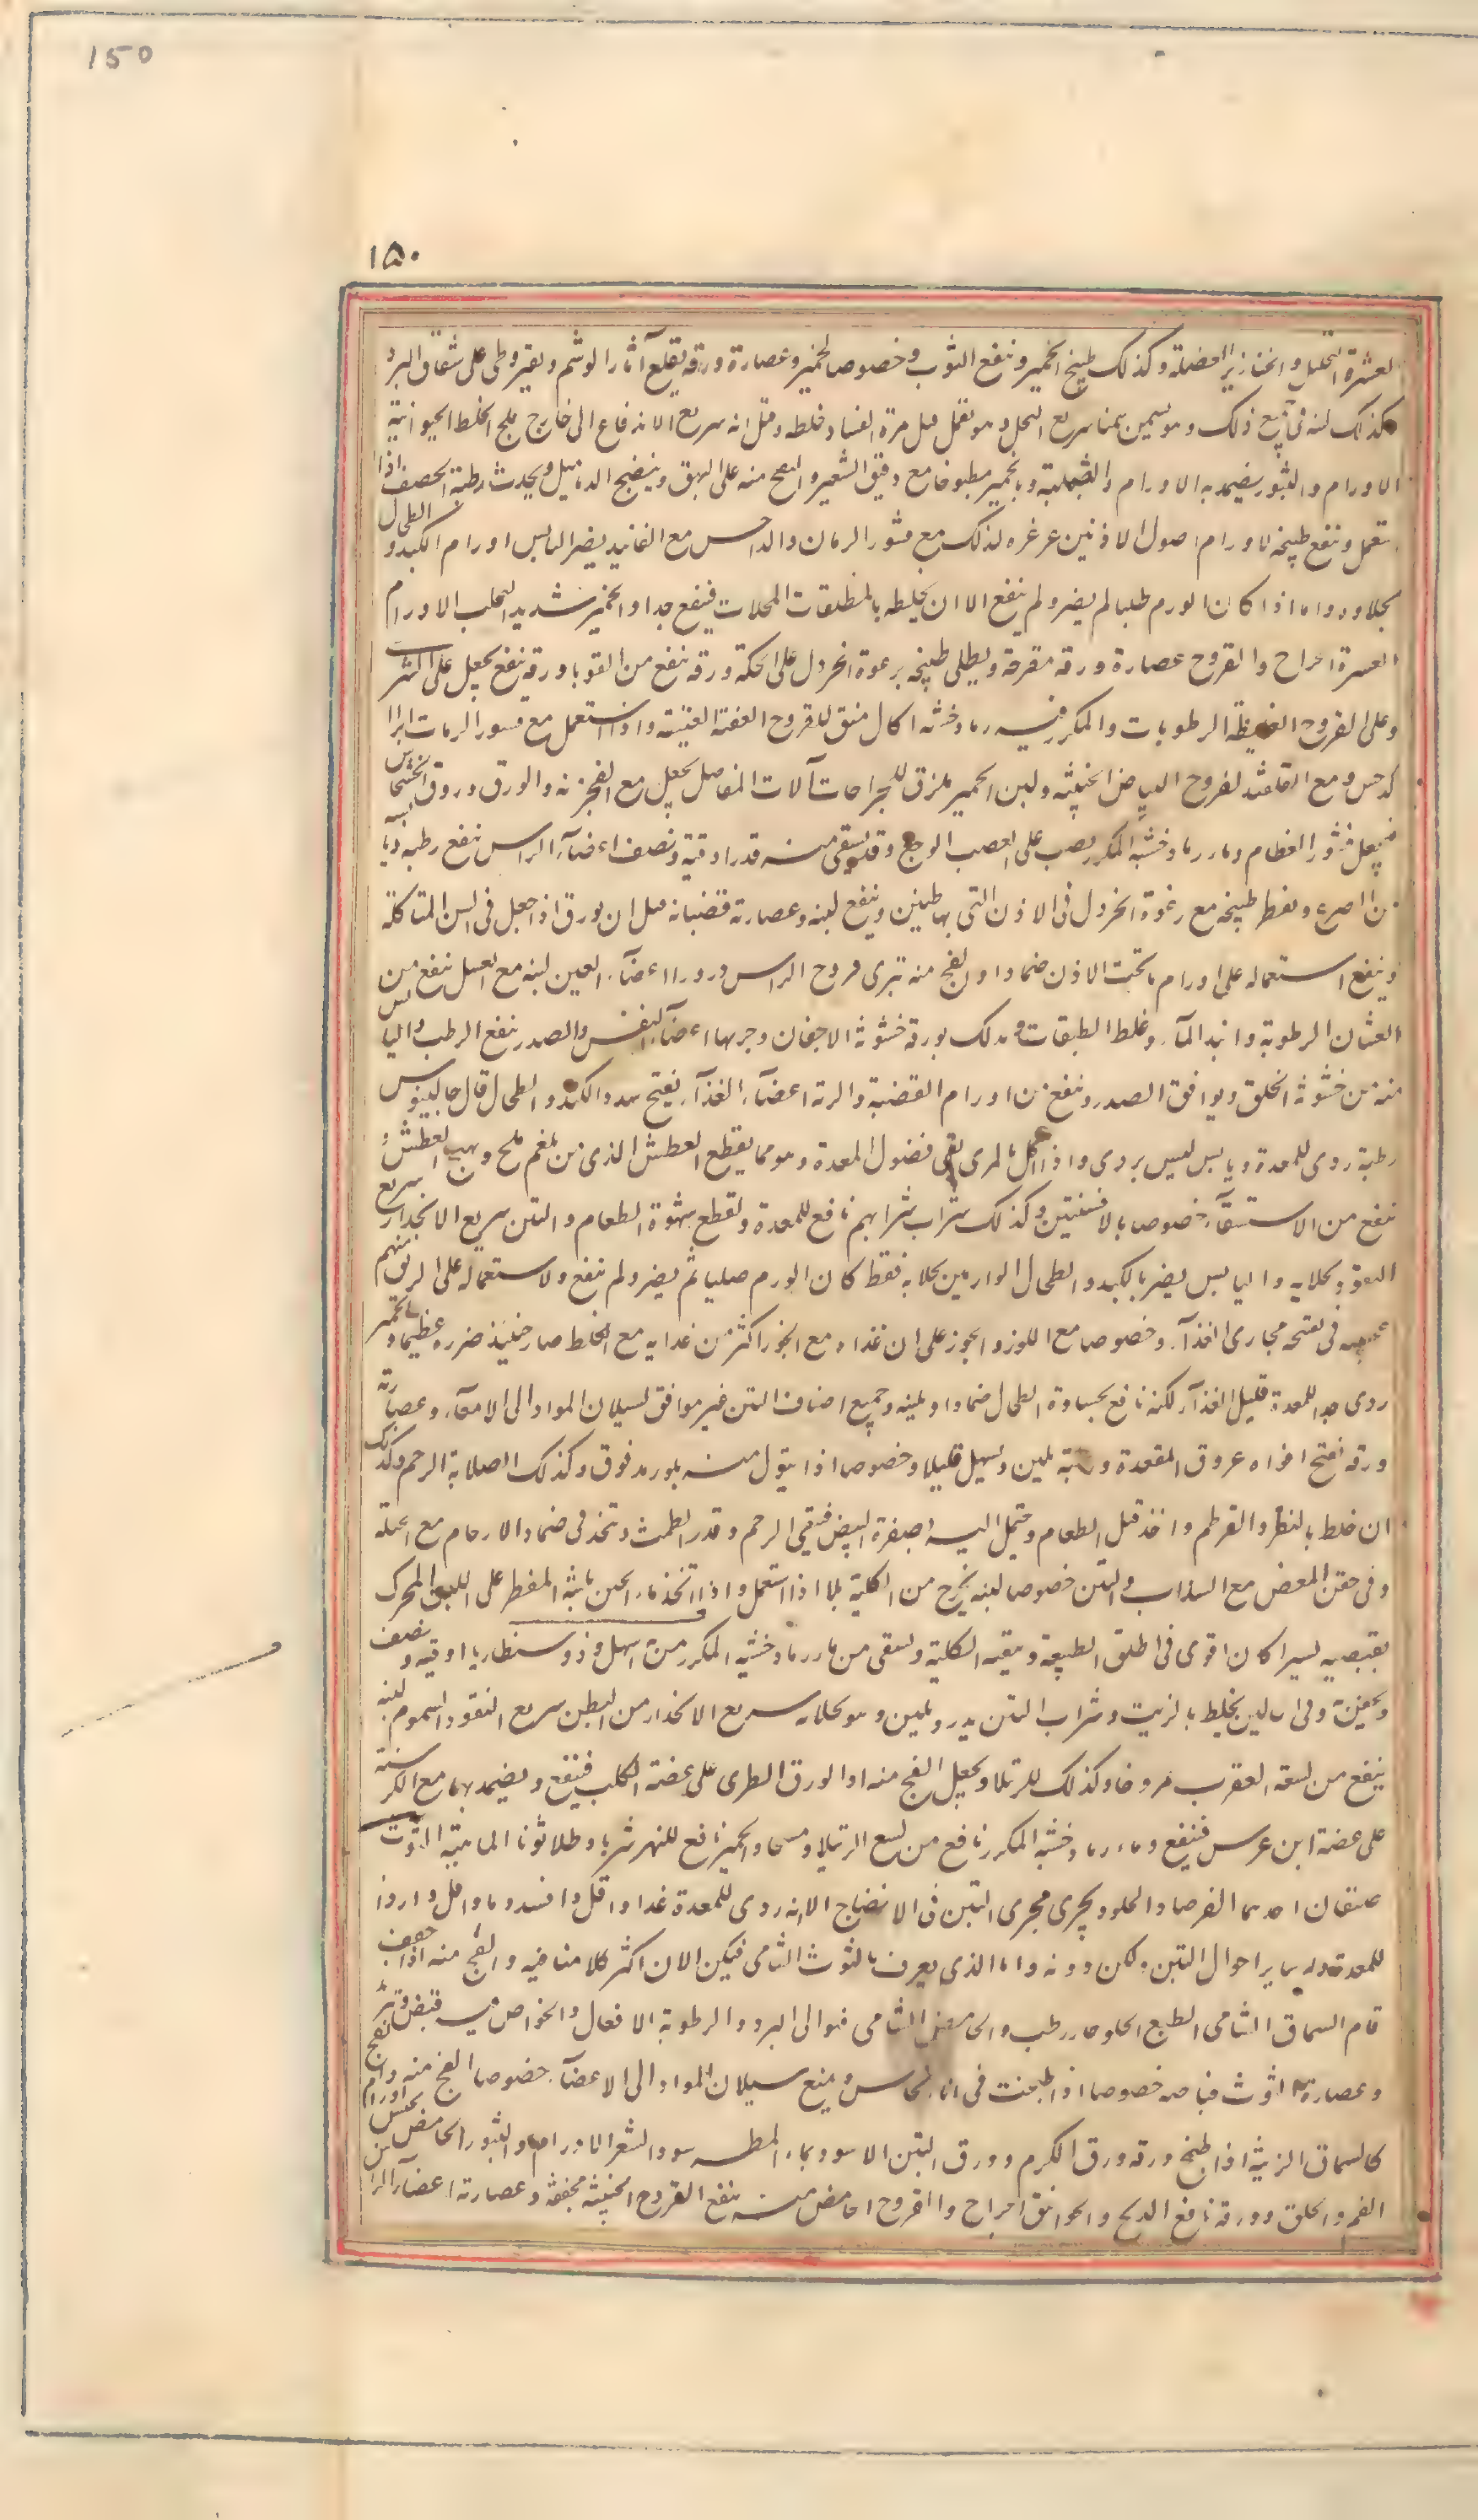 150
۱۵۰
العسرة التحليل والخنازير العضلة وكذلك طبيخ الجميز وينفع التوب وخصوصا الجميز وعصارة ورقه يقلع آثار الوشم وبقيروطى على شقاق البرد
وكذلك لبنه فى جميع ذلك وهو يسمن سمنا سريع التحلل وهو يقمل قيل مرة الفساد خلطه وقيل انه سريع الاندفاع الى خارج
الاورام والبثور يضمد به الاورام الصلبة وبالجميز مطبوخا مع دقيق الشعير والفج منه على البهق وينضج الدماميل ويحدث رطبه الحصف اذا
وينفع طبيخه لاورام اصول الاذنين غرغره لذلك مع قشور الرمان والداحس مع الفانيد يضر اليابس اورام الكبد والطحال
بحلاوه واما اذا كان الورم صلبا لم يضر ولم ينفع الا ان يخلطه بالملطفات المحللات فينفع جدا والجميز شديد التحلب الاورام
العسرة الجراح والقروح عصارة ورقه مقرحة ويطلى طبيخه برغوة الخردل على الحكة ورقه ينفع من القوبا ورقه ينفع يجعل على الشرى
وعلى القروح الغليظة الرطوبات والمكرر فيه رماد خشبه اكال منق للقروح العفنة العتيقة واذا استعمل مع قشور الرمان ابرا
الداحس ومع القلقند لقروح الساق الخبيثة ولبن الجميز ملزق للجراحات آلات المفاصل يجعل مع الفج منه والورق وورق الخشخاش
قشور العظام وماء رماد خشبه المكرر يصب على العصب الوجع وقد يسقى منه قدر اوقية ونصف اعضآء الراس ينفع رطبه ويابسه
من الصرع ويقطر طبيخه مع رغوة الخردل فى الاذن التى بها طنين وينفع لبنه وعصارة قضبانه قبل ان يورق اذا جعل فى السن المتآكلة
وينفع استعماله على اورام ما تحت الاذن ضمادا والفج منه تبرى قروح الراس ذرورا اعضآء العين لبنه مع العسل ينفع من
الغشاوة الرطوبة وابتدآء المآء وغلظ الطبقات ويدلك بورقه خشونة الاجفان وجربها اعضآء النفس والصدر ينفع الرطب واليابس
منه من خشونة الحلق ويوافق الصدر وينفع من اورام القصبة والرية اعضآء الغذآء يفتح سدد الكبد والطحال قال جالينوس
رطبه ردى للمعدة ويابسه ليس بردى واذا اكل بالمرى نقى فضول المعدة وهو مما يقطع العطش الذى من بلغم ملح ويهيج العطش و
ينفع من الاستسقآء خصوصا بالافسنتين وكذلك شراب شرابهم نافع للمعدة ويقطع شهوة الطعام والتين سريع الانحدار سريع
النفوذ بحلايه واليابس يضر بالكبد والطحال الوارمين بجلايه فقط كان الورم صلبا لم يضر ولم ينفع ولاستعماله على الريق منفعة
عجيبة فى تفتحه مجارى الغذآء وخصوصا مع اللوز والجوز على ان غذاه مع الجوز اكثر من غذايه مع الخلط صار حينيذ ضرره عظيما والجميز
ردى جدا للمعدة قليل الغذآء لكنه نافع بجساوة الطحال ضمادا ولينه وجميع اصناف التين غير موافق لسيلان المواد الى الامعآء وعصارة
ورقه تفتح افواه عروق المقعدة ورطبه يلين ويسهل قليلا وخصوصا اذا تنول منه بلوز مدقوق وكذلك لصلابة الرحم وكذلك
ان خلط بالنطرون والقرطم واخذ قبل الطعام ويحتمل اليه بصفرة البيض فينقى الرحم وتدر الطمث وتتخذ فى ضماد الارحام مع الحلبة
وفى حقن المغص مع السذاب والتين خصوصا لبنه يخرج من الكلية بلا اذا استعمل واذا اتخذ ماء الجبن باللبن المقطر على اللبن المحرك
بقضيبه ليسيرا كان اقوى فى اطلاق الطبيعة وتنقية الكلية ويسقى من ماء رماد خشبه المكرر من به اسهال وذوسنطاريا اوقية ونصف
ويحقن به وفى الحالين يخلط بالزيت وشراب التين يدر ويلين وهو لحلايه سريع الانحدار من البطن سريع النفوذ السموم لبنه
ينفع من لسعة العقرب مروخا وكذلك للرتيلا ويجعل الفج منه او الورق الطرى على عضة الكلب فينفع ويضمد بها مع الكرسنة
على عضة ابن عرس فينفع وماء رماد خشبه المكرر نافع من لسع الرتيلا ومسحا والجميز نافع للنهش شربا وطلا توت الماهية التوت
صنفان احدهما الفرصاد الحلو ويجرى مجرى التين فى الانضاج الا انه ردى للمعدة غذاء واقل وافسد دما واقل واردا
للمعدة وله سائر احوال التين ولكن دونه واما الذى يعرف بالتوث الشامى فليكن الان اكثر كلامنا فيه والفج منه اذا جفف
قام السماق الشامى الطبع الحلو حار رطب والحامض الشامى فهو الى البرد والرطوبة الافعال والخواص فيه قبض
وعصارة التوث قباضه خصوصا اذا طبخت فى اناء نحاس ويمنع سيلان المواد الى الاعضآء خصوصا الفج منه
كالسماق الزينة اذا طبخ ورقه ورق الكرم وورق التين الاسود بماء المطر سود الشعر الاورام والبثور الحامض
الفم والحلق وورقه نافع الذبح والخوانيق الجراح والقروح الحامض منه ينفع القروح الخبيثة مجففة وعصارته اعضآء الراس